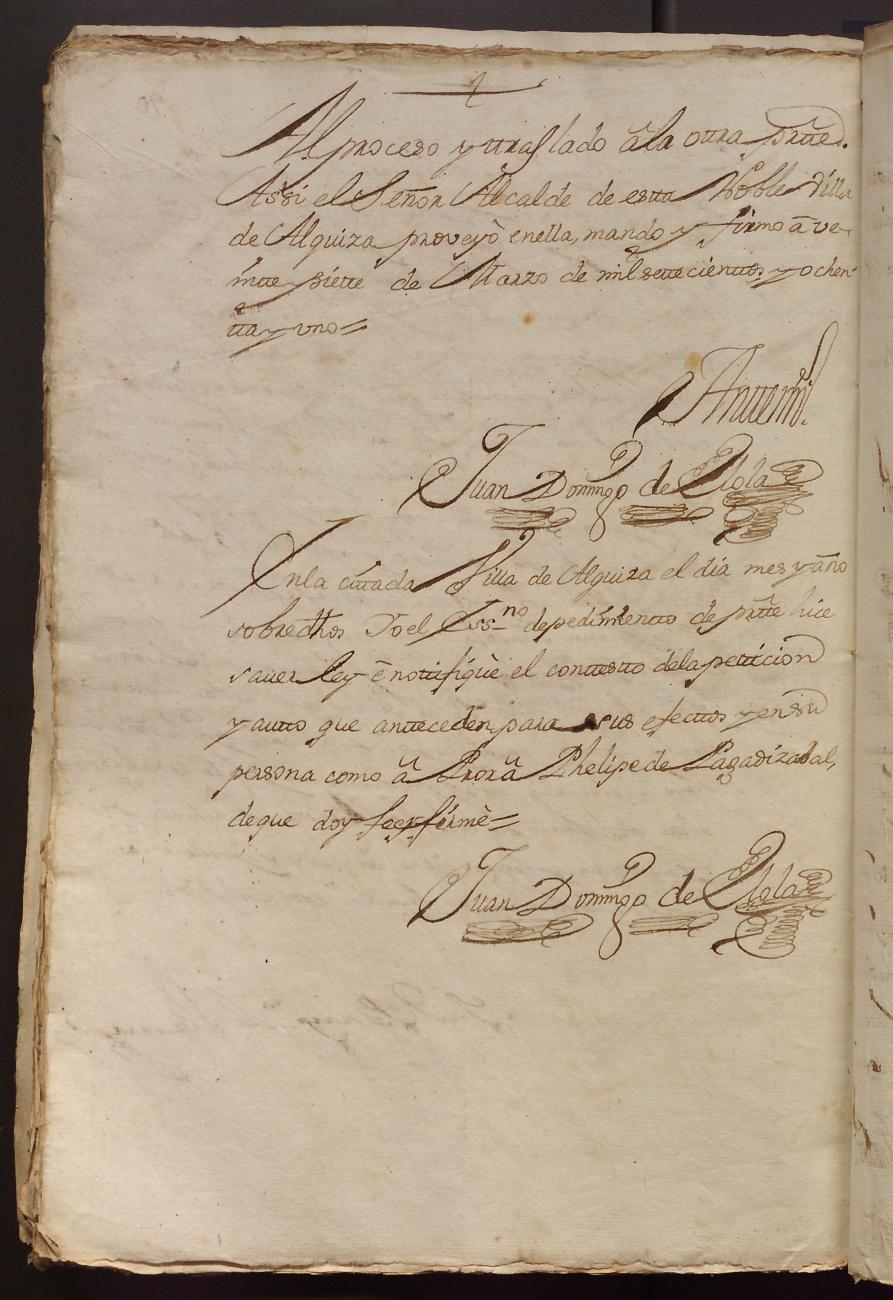 Al proceso y traslado â la otra prte.
Assi el Señor Alcalde de esta Noble Villa
de Alquiza proveyò en ella, mando y firmo â ve-
inte y siete de Marzo de mil setecientos y ochen
ta y uno=
Antemi
Juan Domingo de Elola
En la citada Villa de Alquiza el dia mes y año
sobredhos Yo el Essno de pedimiento de prte hice
saver ley è notifiquè el contesto de la peticion
y auto que anteceden para sus efectos y en su
persona como â Prorâ Phelipe de Lagadizabal,
de que doy fee y firmè=
Juan Domingo de Elola